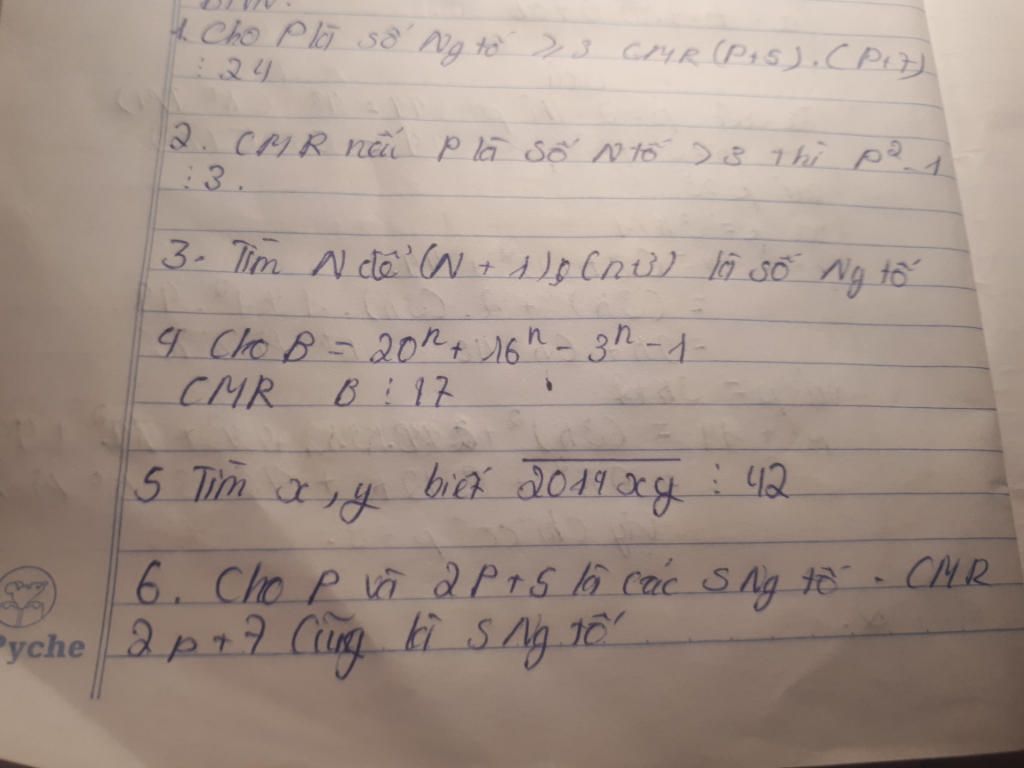 1. Cho P là số Ng tố ≥ 3 CMR (P+5).(P+7)
⋮ 24
2. CMR nếu P là số N tố > 3 thì P² - 1
⋮ 3.
3. Tìm N để (N + 1) (n+3) là số Ng tố
4 Cho B = 20ⁿ + 16ⁿ - 3ⁿ - 1
CMR B ⋮ 17
5 Tìm x, y biết 2014xy ⋮ 42
6. Cho P và 2P+5 là các S Ng tố. CMR
2p+7 Cũng là S Ng tố
yche